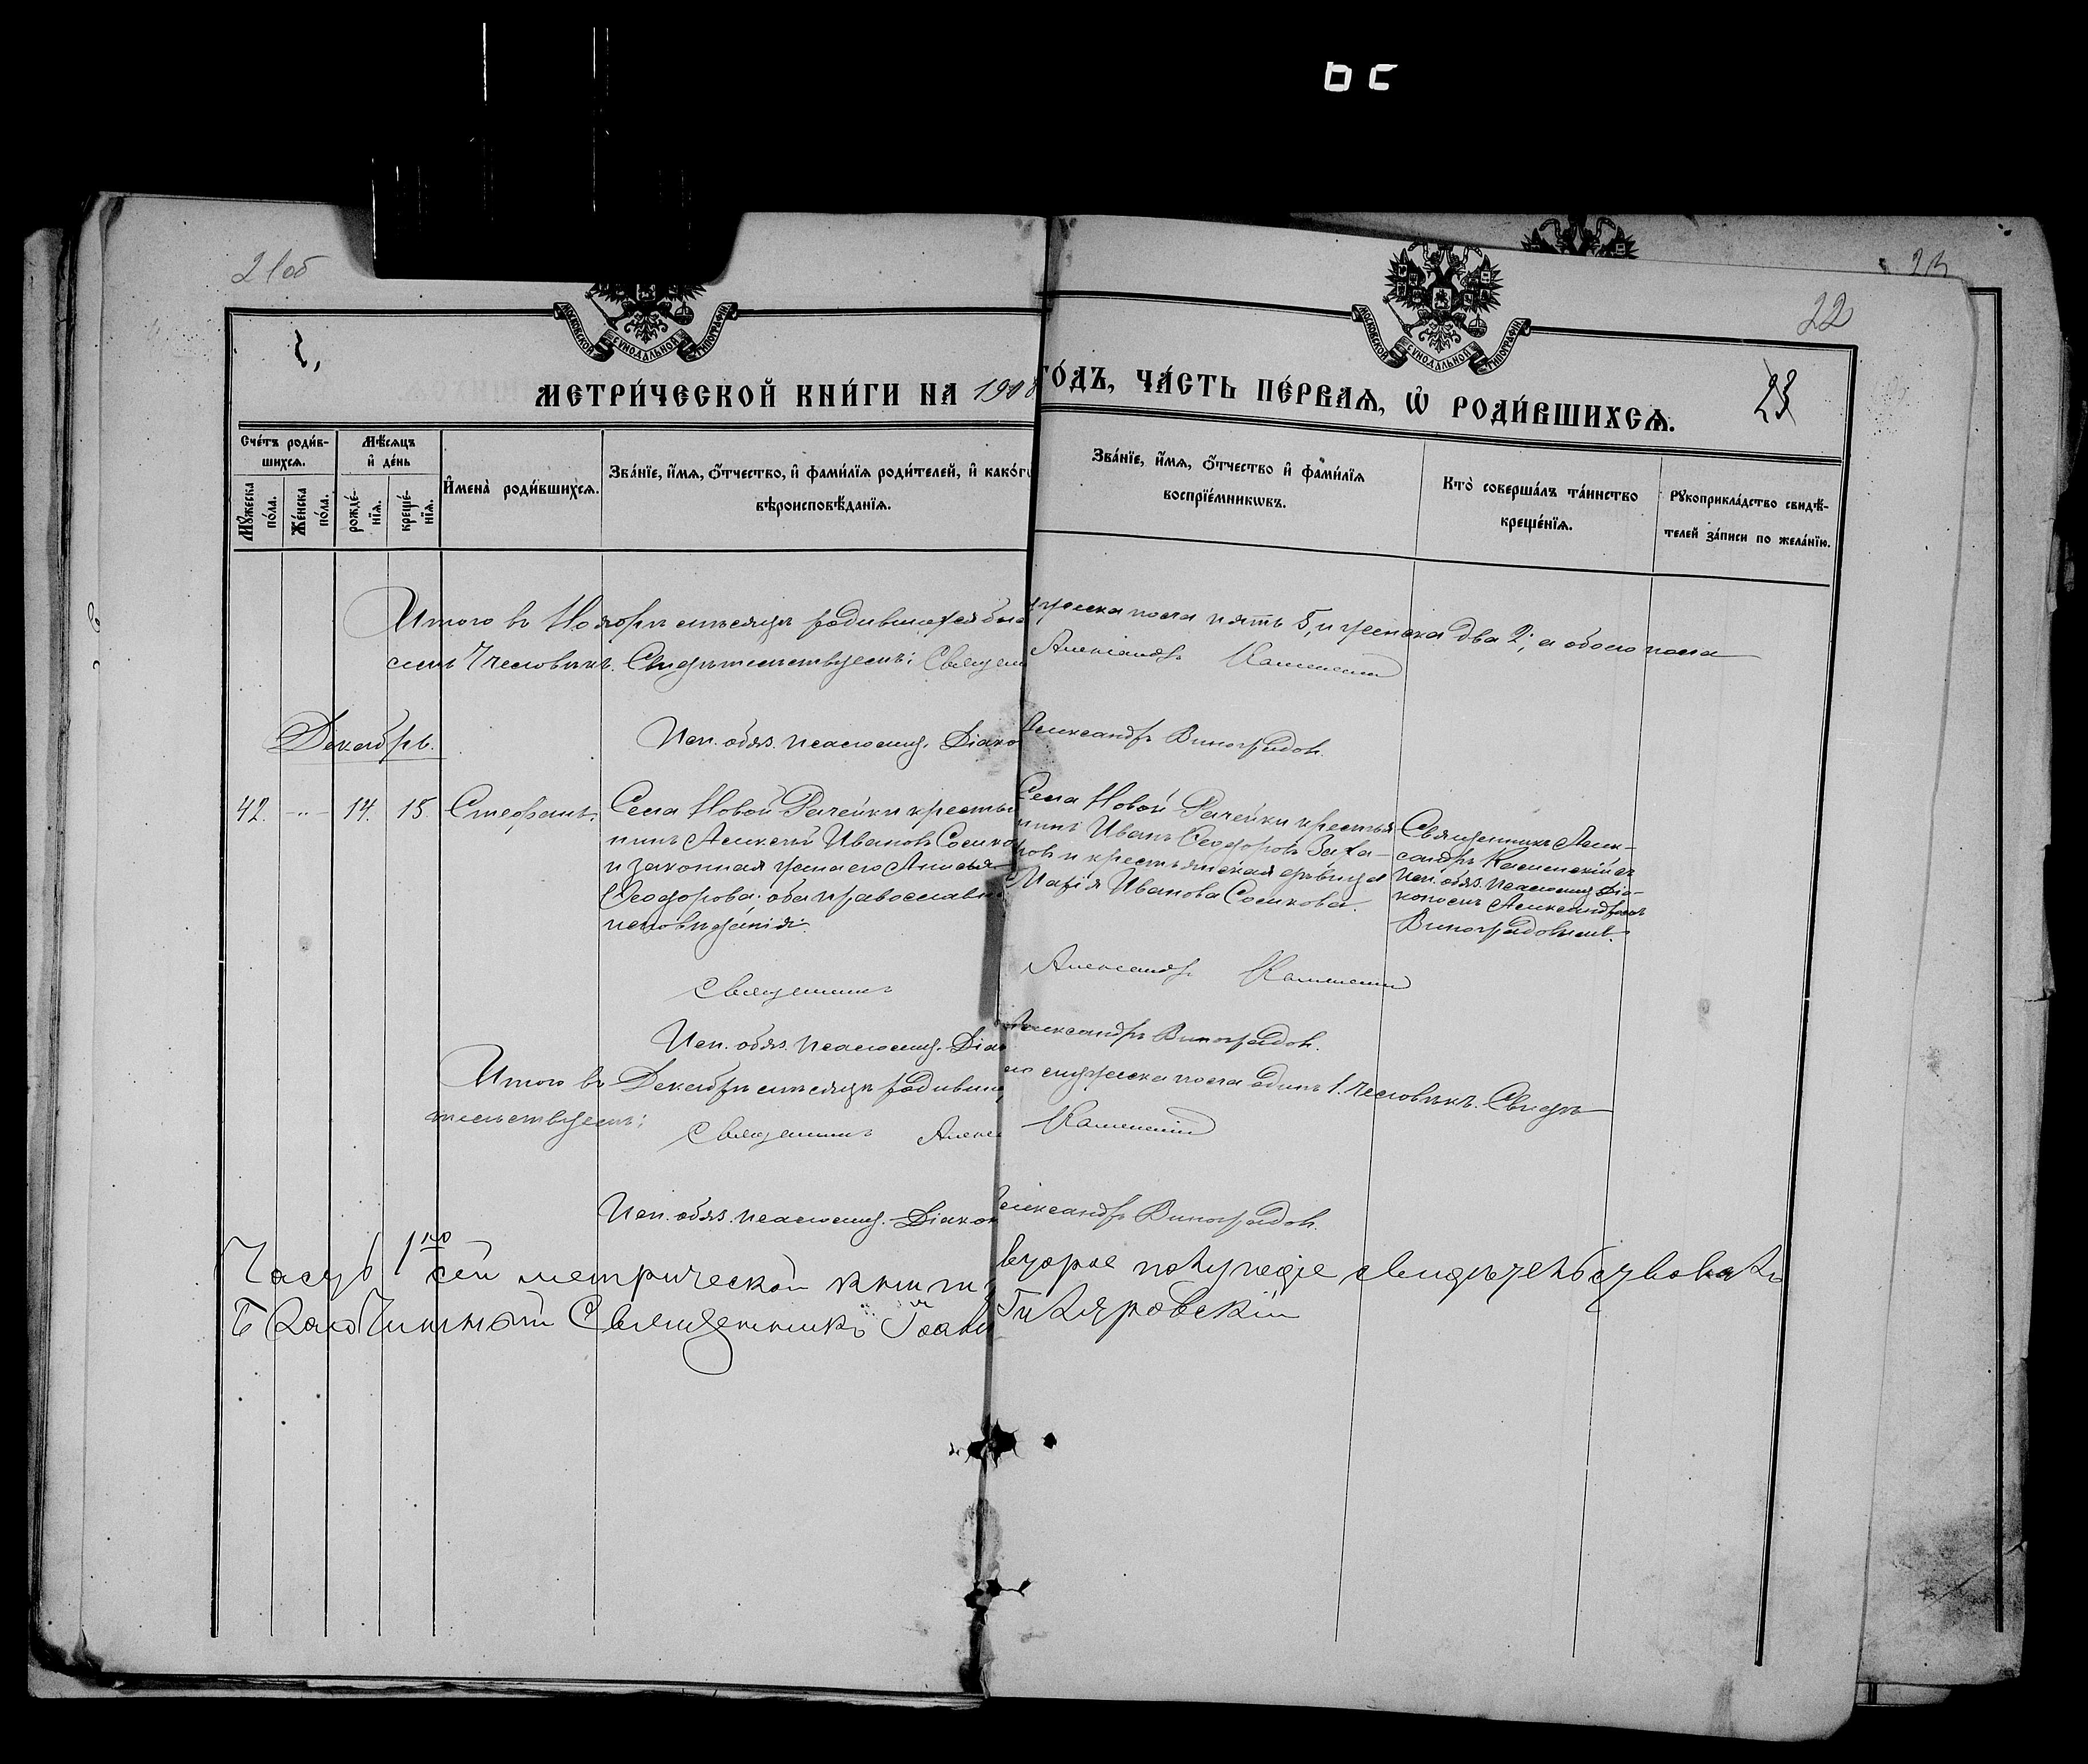 21об
22
23
МЕТРИ́ЧЕСКОЙ КНИ́ГИ НА 1908 ГО́ДЪ, ЧА́СТЬ ПЕ́РВАѦ, Ѡ РОДИ́ВШИХСѦ.
Сче́тъ роди́в-
шихсѧ.
Мѣ́сѧцъ
и҆ де́нь
Мꙋ́жеска
по́ла.
Же́нска
по́ла.
рожде́-
нїѧ.
креще́-
нїѧ.
И҆мена̀ роди́вшихсѧ.
Зва́нїе, и҆́мѧ, ѻ҆́тчество, и҆ фами́лїѧ роди́телей, и҆ како́гѡ
вѣроисповѣ́данїѧ.
Зва́нїе, и҆́мѧ, ѻ҆́тчество и҆ фами́лїѧ
воспрїе́мникѡвъ.
Кто̀ соверша́лъ та́инство
креще́нїѧ.
Рꙋкоприкла́дство свидѣ́-
телей за́писи по жела́нїю.
Итого въ Ноябрѣ мѣсяцѣ родившихся бы мужеска пола пять 5, и женска два 2; а обоего пола
семь 7 человѣкъ. Свидѣтельствуемъ: Священ Александръ Каменскій
Исп. обяз. псаломщ. Діако Александръ Виноградов.
Декабрь.
42. -"- 14. 15. Стефанъ.
Села Новой Рачейки крестья
нинъ Алексѣй Ивановъ Сосико
и законная жена его
Ѳеодорова: оба православн
исповѣданія.
Села Новой Рачейки крестья-
нинъ Иванъ Ѳеодоровъ Заха-
ровъ и крестьянская дѣвица
Марія Иванова Сосикова.
Священникъ Алек-
сандръ Каменскій съ
исп. обяз. псаломщ. діа-
кономъ Александромъ
Виноградовымъ.
Священникъ Александръ Каменскій
Исп. обяз. псаломщ. Діак Александръ Виноградов.
Итого въ Декабрѣ мѣсяцѣ родивш мужеска пола одинъ 1. человѣкъ. Свидѣ-
тельствуемъ:
Священникъ Алекс Каменскій
Исп. обяз. псаломщ. Діакон Александръ Виноградов.
Часть 1ю сей метрической книги за второе полугодіе свидѣтельствовалъ
Благочинный Священникъ Іоанн Гиляровскій